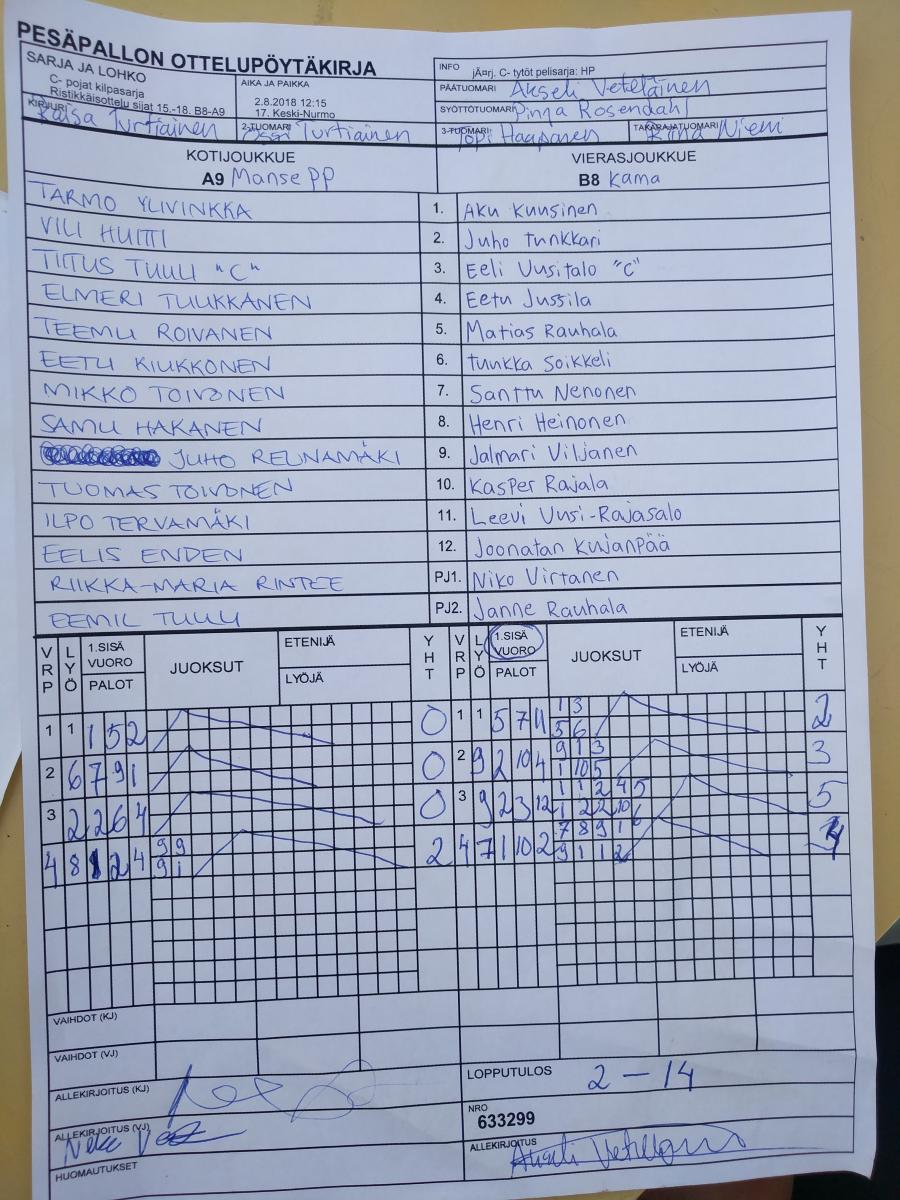 PESÄPALLON OTTELUPÖYTÄKIRJA
SARJA JA LOHKO
C- pojat kilpasarja
Ristikkäisottelu sijat 15.-18. B8-A9
AIKA JA PAIKKA
2.8.2018 12:15
17. Keski-Nurmo
INFO jÄ¤rj. C- tytöt pelisarja: HP
PÄÄTUOMARI Akseli Veteläinen
SYÖTTÖTUOMARI Pinja Rosendahl
KIRJURI Raisa Turtiainen
2-TUOMARI Turtiainen
3-TUOMARI Topi Haapanen
TAKARAJATUOMARI Niemi
KOTIJOUKKUE
A9 Manse PP
VIERASJOUKKUE
B8 Kama
TARMO YLIVINKKA 1. Aku Kuusinen
VILI HUITTI 2. Juho Tunkkari
TIITUS TUULI "C" 3. Eeli Uusitalo "C"
ELMERI TUUKKANEN 4. Eetu Jussila
TEEMU ROIVANEN 5. Matias Rauhala
EETU KIUKKONEN 6. Tuukka Soikkeli
MIKKO TOIVONEN 7. Santtu Nenonen
SAMU HAKANEN 8. Henri Heinonen
JUHO REUNAMÄKI 9. Jalmari Viljanen
TUOMAS TOIVONEN 10. Kasper Rajala
ILPO TERVAMÄKI 11. Leevi Uusi-Rajasalo
EELIS ENDEN 12. Joonatan Kujanpää
RIIKKA-MARIA RINTEE PJ1. Niko Virtanen
EEMIL TUULI PJ2. Janne Rauhala
VRP LYÖ 1.SISÄ VUORO PALOT JUOKSUT ETENIJÄ LYÖJÄ YHT VRP LYÖ 1.SISÄ VUORO PALOT JUOKSUT ETENIJÄ LYÖJÄ YHT
1 1 1 5 2 0 1 1 5 7 11 1 3 2
5 6
2 6 7 9 1 0 2 9 2 10 4 9 1 3 3
1 10 5
3 2 2 6 4 0 3 9 2 3 12 1 1 2 4 5 5
1 2 2 10 6
4 8 2 4 9 9 2 4 7 1 10 2 7 8 9 1 4
9 1 9 1 1 2
VAIHDOT (KJ)
VAIHDOT (VJ)
ALLEKIRJOITUS (KJ)
LOPPUTULOS 2 – 14
ALLEKIRJOITUS (VJ)
NRO
633299
HUOMAUTUKSET
ALLEKIRJOITUS